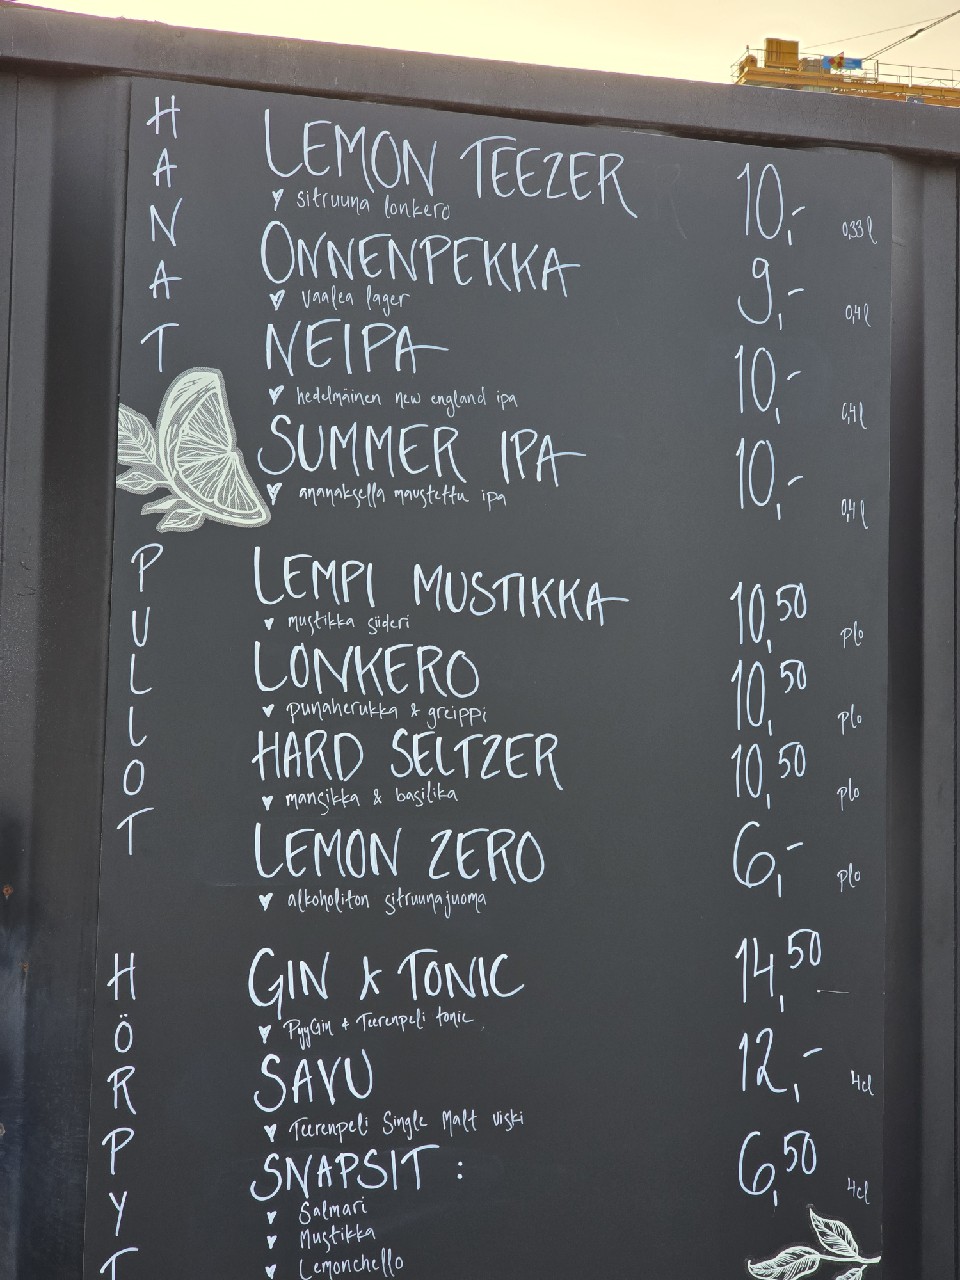 HANAT
LEMON TEEZER 10,- 0,33 l
sitruuna lonkero
ONNENPEKKA 9,- 0,4 l
vaalea lager
NEIPA 10,- 0,4 l
hedelmäinen new england ipa
SUMMER IPA 10,- 0,4 l
ananaksella maustettu ipa
PULLOT
LEMPI MUSTIKKA 10,50 plo
mustikka siideri
LONKERO 10,50 plo
punaherukka & greippi
HARD SELTZER 10,50 plo
mansikka & basilika
LEMON ZERO 6,- plo
alkoholiton sitruunajuoma
HÖRPYT
GIN & TONIC 14,50
PyyGin & Teerenpeli tonic
SAVU 12,- 4cl
Teerenpeli Single Malt viski
SNAPSIT : 6,50 4cl
Salmari
Mustikka
Lemonchello